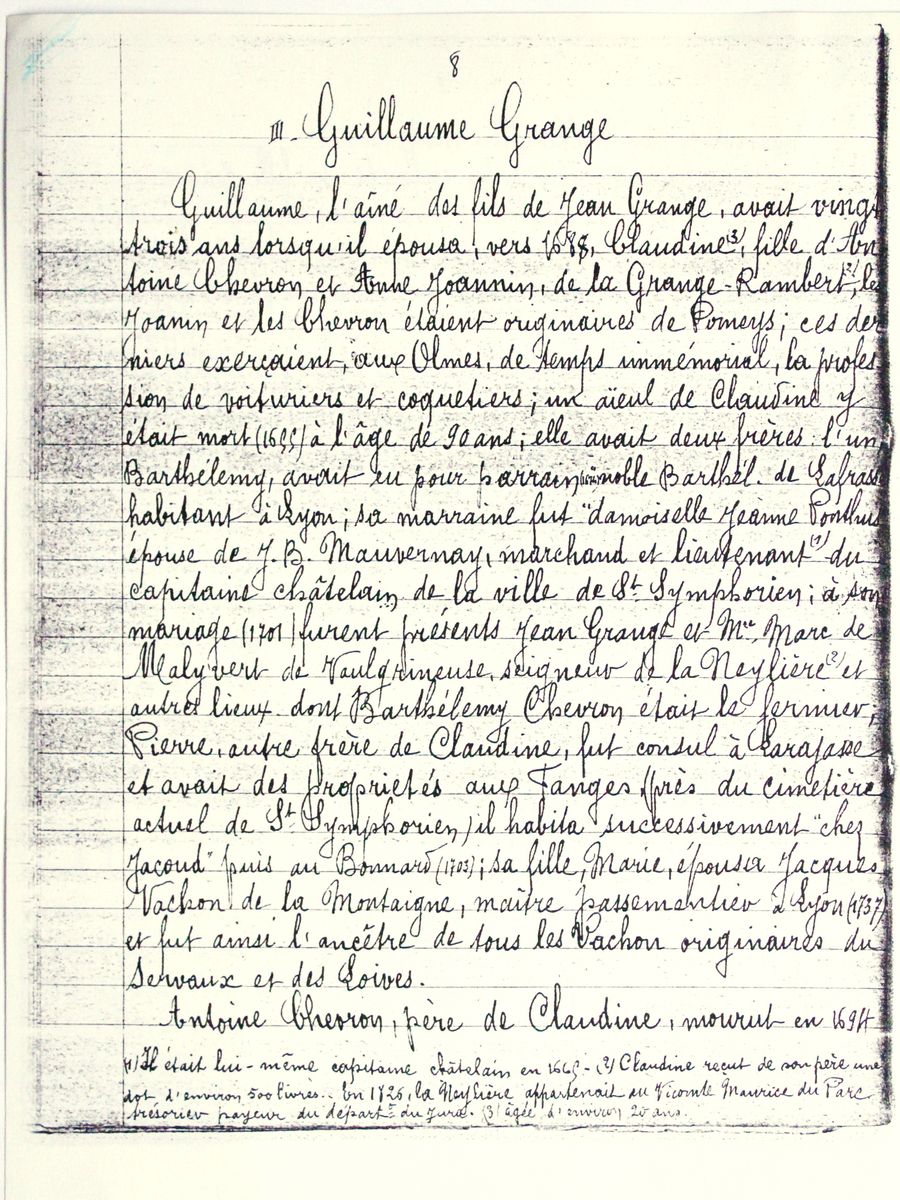 8
III - Guillaume Grange
Guillaume, l'aîné des fils de Jean Grange, avait vingt
trois ans lorsqu'il épousa, vers 1688, Claudine (3), fille d'An
toine Chevron et Anne Joannin, de la Grange-Rambert (2); les
Joanin et les Chevron étaient originaires de Pomeys; ces der
niers exerçaient, aux Olmes, de temps immémorial, la profes
sion de voituriers et coquetiers; un aïeul de Claudine y
était mort (1695) à l'âge de 90 ans; elle avait deux frères: l'un,
Barthélemy, avait eu pour parrain noble Barthél. de Lafrasse
habitant à Lyon; sa marraine fut "damoiselle Jeanne Ponthus
épouse de J. B. Mauvernay, marchand et lieutenant (1) du
capitaine châtelain de la ville de St Symphorien; à son
mariage (1701) furent présents Jean Grange et Mre Marc de
Malyvert de Vaulgrineuse, seigneur de la Neylière (2) et
autres lieux dont Barthélemy Chevron était le fermier;
Pierre, autre frère de Claudine, fut consul à Larajasse
et avait des propriétés aux Fanges (près du cimetière
actuel de St Symphorien) il habita successivement "chez
Jacoud" puis au Bonnard (1703); sa fille, Marie, épousa Jacques
Vachon de la Montaigne, maître passementier à Lyon (1737)
et fut ainsi l'ancêtre de tous les Vachon originaires du
Servaux et des Loives.
Antoine Chevron, père de Claudine, mourut en 1694
(1) Il était lui-même capitaine châtelain en - (2) Claudine reçut de son père une
dot d'environ 500 livres.. En 1826, la Neylière appartenait au Vicomte Maurice du Parc
trésorier payeur du départt du Jura. (3) âgée d'environ 20 ans.